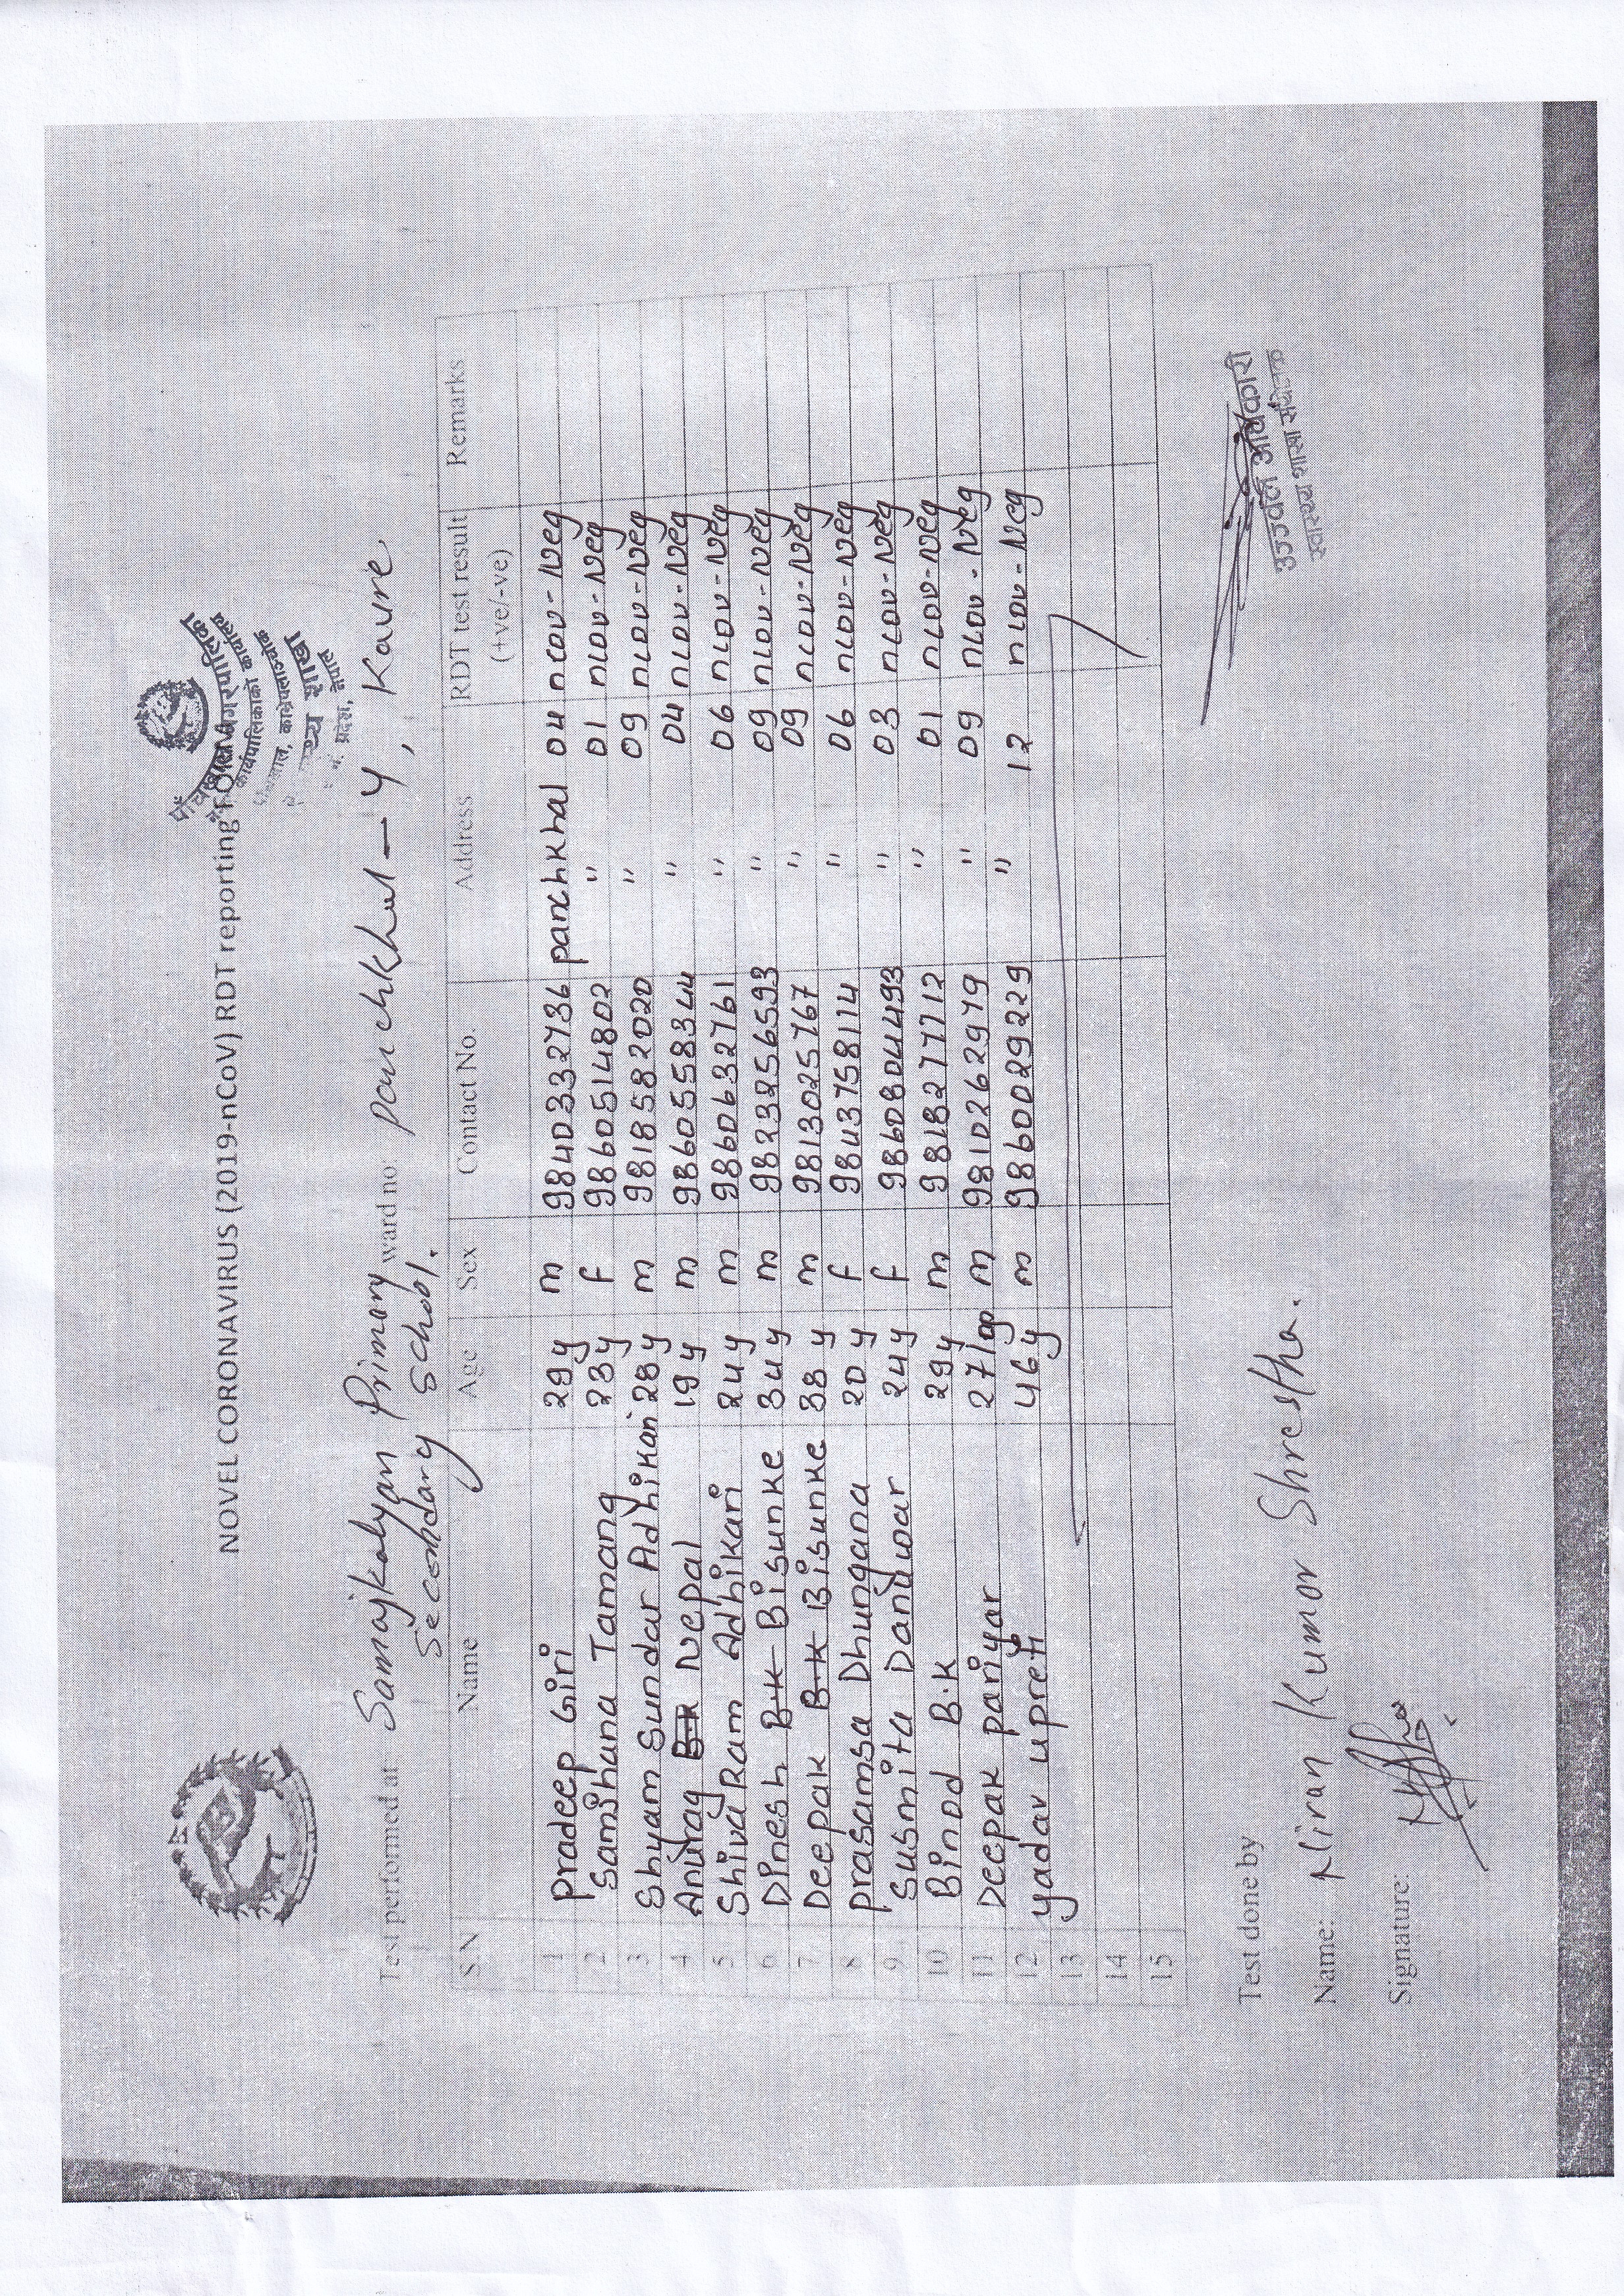 पाँचखाल नगरपालिका
कार्यपालिकाको कार्यालय
काभ्रेपलाञ्चोक
शाखा
प्रदेश, नेपाल
NOVEL CORONAVIRUS (2019-nCoV) RDT reporting FORM
Test performed at: Samajkalyan Primary ward no: Panchkhal - 4, Kavre
Secondary School.
S.N Name Age Sex Contact No. Address RDT test result (+ve/-ve) Remarks
1 Pradeep Giri 29 y m 9840332736 panchkhal 04 ncov-Neg
2 Samjhana Tamang 23y F 9860514802 " 01 ncov-Neg
3 Shyam Sundar Adhikari 28y m 9818582020 " 09 ncov-Neg
4 Anurag Nepal 19 y m 9860558344 " 04 ncov-Neg
5 Shiva Ram Adhikari 24y m 9860632761 " 06 ncov-Neg
6 Dinesh B.K Bisunke 34y m 9823256593 " 09 ncov-Neg
7 Deepak B.K Bisunke 38 y m 9813025767 " 09 ncov-Neg
8 prasamsa Dhungana 20 y F 9843758114 " 06 ncov-Neg
9 Susmita Danuwar 24y F 9860804493 " 03 ncov-Neg
10 Binod B.K 29y m 9818277712 " 01 ncov-Neg
11 Deepak pariyar 27 m 9810262979 " 09 ncov-Neg
12 yadav upreti 46y m 9860029229 " 12 ncov-Neg
13
14
15
Test done by
Name: Niran Kumar Shrestha.
Signature:
उज्ज्वल अधिकारी
स्वास्थ्य शाखा संयोजक